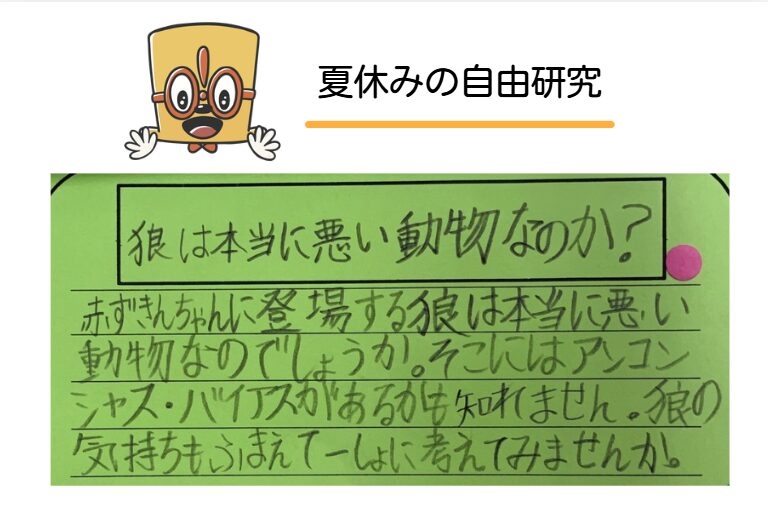 夏休みの自由研究
狼は本当に悪い動物なのか?
赤ずきんちゃんに登場する狼は本当に悪い
動物なのでしょうか。そこにはアンコン
シャス・バイアスがあるかも知れません。狼の
気持ちもふまえて一しょに考えてみませんか。